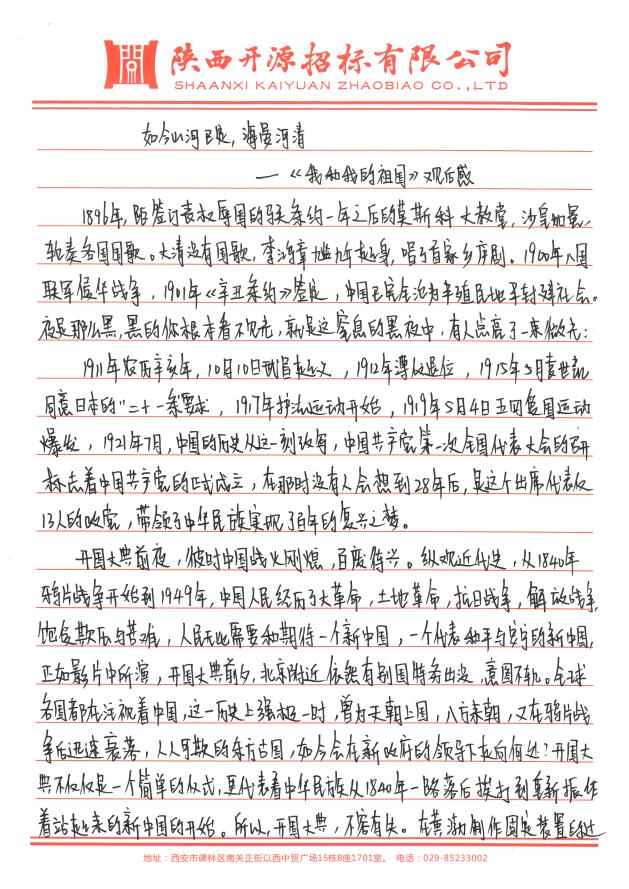 陕西开源招标有限公司
SHAANXI KAIYUAN ZHAOBIAO CO.,LTD
如今山河已定，海晏河清
—《我和我的祖国》观后感
1896年，距签订丧权辱国的马关条约一年之后的莫斯科大教堂，沙皇加冕，
轮奏各国国歌。大清没有国歌，李鸿章尴尬起身，唱了首家乡庐剧。1900年八国
联军侵华战争，1901年《辛丑条约》签定，中国已完全沦为半殖民地半封建社会。
夜是那么黑，黑的你根本看不见光，就是这窒息的黑夜中，有人点亮了一束微光：
1911年农历辛亥年，10月10日武昌起义，1912年溥仪退位，1915年5月袁世凯
同意日本的"二十一条"要求，1917年护法运动开始，1919年5月4日五四爱国运动
爆发，1921年7月，中国的历史从这一刻改写，中国共产党第一次全国代表大会的召开
标志着中国共产党的正式成立，在那时没有人会想到28年后，是这个出席代表仅
13人的政党，带领了中华民族实现了百年的复兴之梦。
开国大典前夜，彼时中国战火刚熄，百废待兴。纵观近代史，从1840年
鸦片战争开始到1949年，中国人民经历了大革命，土地革命，抗日战争，解放战争，
饱受欺压与苦难，人民无比需要和期待一个新中国，一个代表和平与安宁的新中国，
正如影片中所演，开国大典前夕，北京附近依然有别国特务出没，意图不轨。全球
各国都在注视着中国，这一历史上强极一时，曾为天朝上国，八方来朝，又在鸦片战
争后迅速衰落，人人可欺的东方古国，如今会在新政府的领导下走向何处？开国大
典不仅仅是一个简单的仪式，更代表着中华民族从1840年一路落后挨打到重新振作
着站起来的新中国的开始。所以，开国大典，不容有失。在黄渤制作固定装置的过
地址：西安市碑林区南关正街以西中贸广场15栋B座1701室。 电话：029-85233002